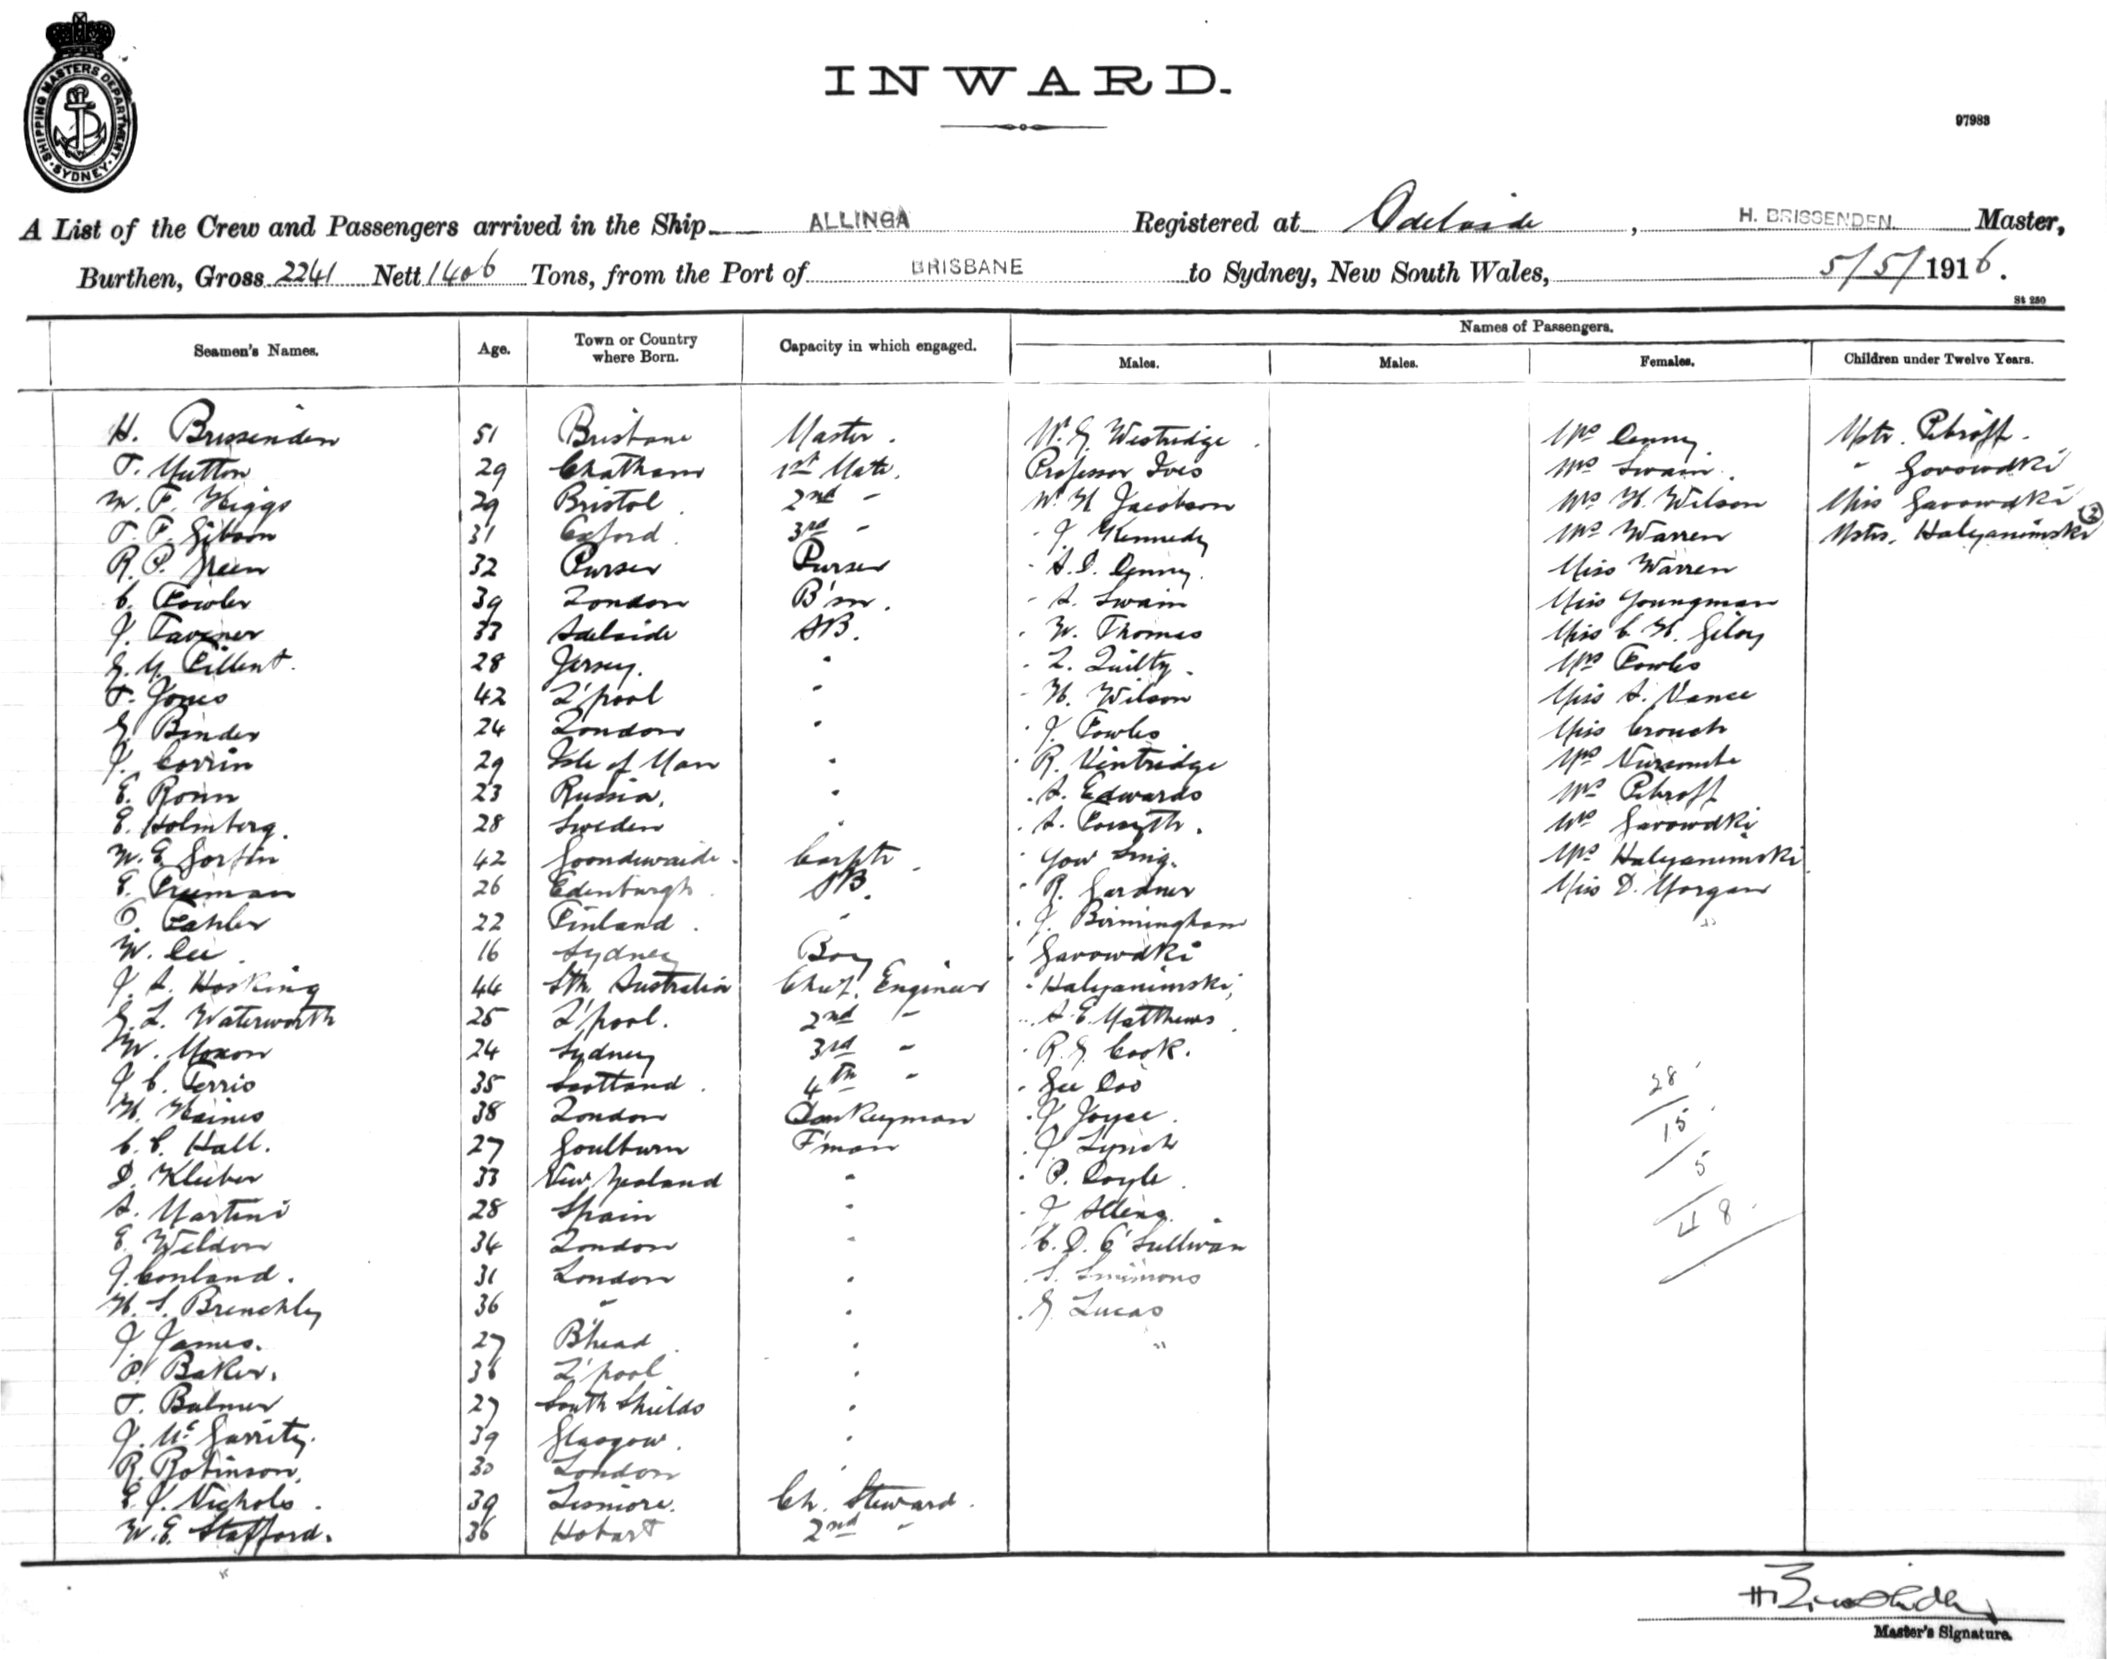 SHIPPING MASTERS DEPARTMENT · SYDNEY ·
INWARD.
97983
A List of the Crew and Passengers arrived in the Ship ALLINGA Registered at Adelaide, H. BRISSENDEN. Master,
Burthen, Gross 2241 Nett 1406 Tons, from the Port of BRISBANE to Sydney, New South Wales, 5/5/1916.
St 250
Seamen's Names. Age. Town or Country where Born. Capacity in which engaged. Names of Passengers.
Males. Males. Females. Children under Twelve Years.
H. Brissenden 51 Brisbane Master. W. G. Westridge Mrs Denny Mstr. Petroff.
T. Mutton 29 Chatham 1st Mate. Professor Ives Mrs Swain " Gavowdki
W. F. Higgs 29 Bristol 2nd " W. H. Jacobson Mrs H. Wilson Miss Gavowdki
T. F. Gibson 31 Oxford 3rd " J. Kennedy Mrs Warren Mstrs. Halyanimski (2)
R. P. Green 32 Purser Purser A. D. Denny. Miss Warren
C. Fowler 39 London B'sn. A. Swain Miss Youngman
J. Taviner 33 Adelaide AB. W. Thomas Miss C. H. Giloy
28 Jersey. " L. Quilty. Mrs Fowles
T. Jones 42 L'pool " H. Wilson Miss A. Vance
G. Binder 24 London " J. Fowles Miss Crouch
J. Corrin 29 Isle of Man " R. Vintridge Mrs Nurcombe
E. Ronn 23 Russia. " A. Edwards Mrs Petroff
E. Holmberg. 28 Sweden " A. Forsyth. Mrs Gavowdki
W. E. 42 Carptr. Gow Sing. Mrs Halyanimski
E. Freeman 26 Edenburgh AB. R. Gardner Miss D. Morgan
22 Finland " J. Birmingham
W. Lee 16 Sydney Boy Gavowdki
J. A. Hosking 44 Sth Australia Chief. Engineer Halyanimski,
G. L. Waterworth 25 L'pool. 2nd " A. E. Matthews
W. Moxon 24 Sydney 3rd " R. G. Cook.
J. C. Ferris 35 Scotland 4th " Gee
H. Haines 38 London Donkeyman J. Joyce
C. C. Hall. 27 Goulburn F'man J. Lynch
D. Kleiber 33 New Zealand " P. Doyle
A. Martini 28 Spain " J
E. Weldon 34 London " C. D. O'Sullivan
J. Conland. 31 London " S. Simmons
H. S. Brenchley 36 " " G. Lucas
J. James. 27 B'head "
P. Baker. 36 L'pool "
T. Balmer 27 South Shields "
J. McGarrity. 39 Glasgow. "
R. Robinson. 30 London "
E. J. Nichols. 39 Lismore. Ch. Steward.
W. E. Stafford. 36 Hobart 2nd "
28
15
5
48
H Brissenden
Master's Signature.